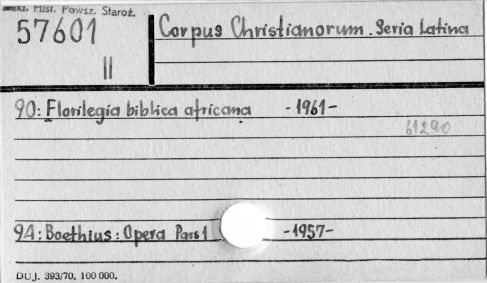 Hist. Powsz. Staroż.
57601
II
Corpus Christianorum. Seria Latina
90: Florilegia biblica africana -1961-
61290
94: Boethius: Opera Pars 1 -1957-
DUJ. 393/70. 100 000.